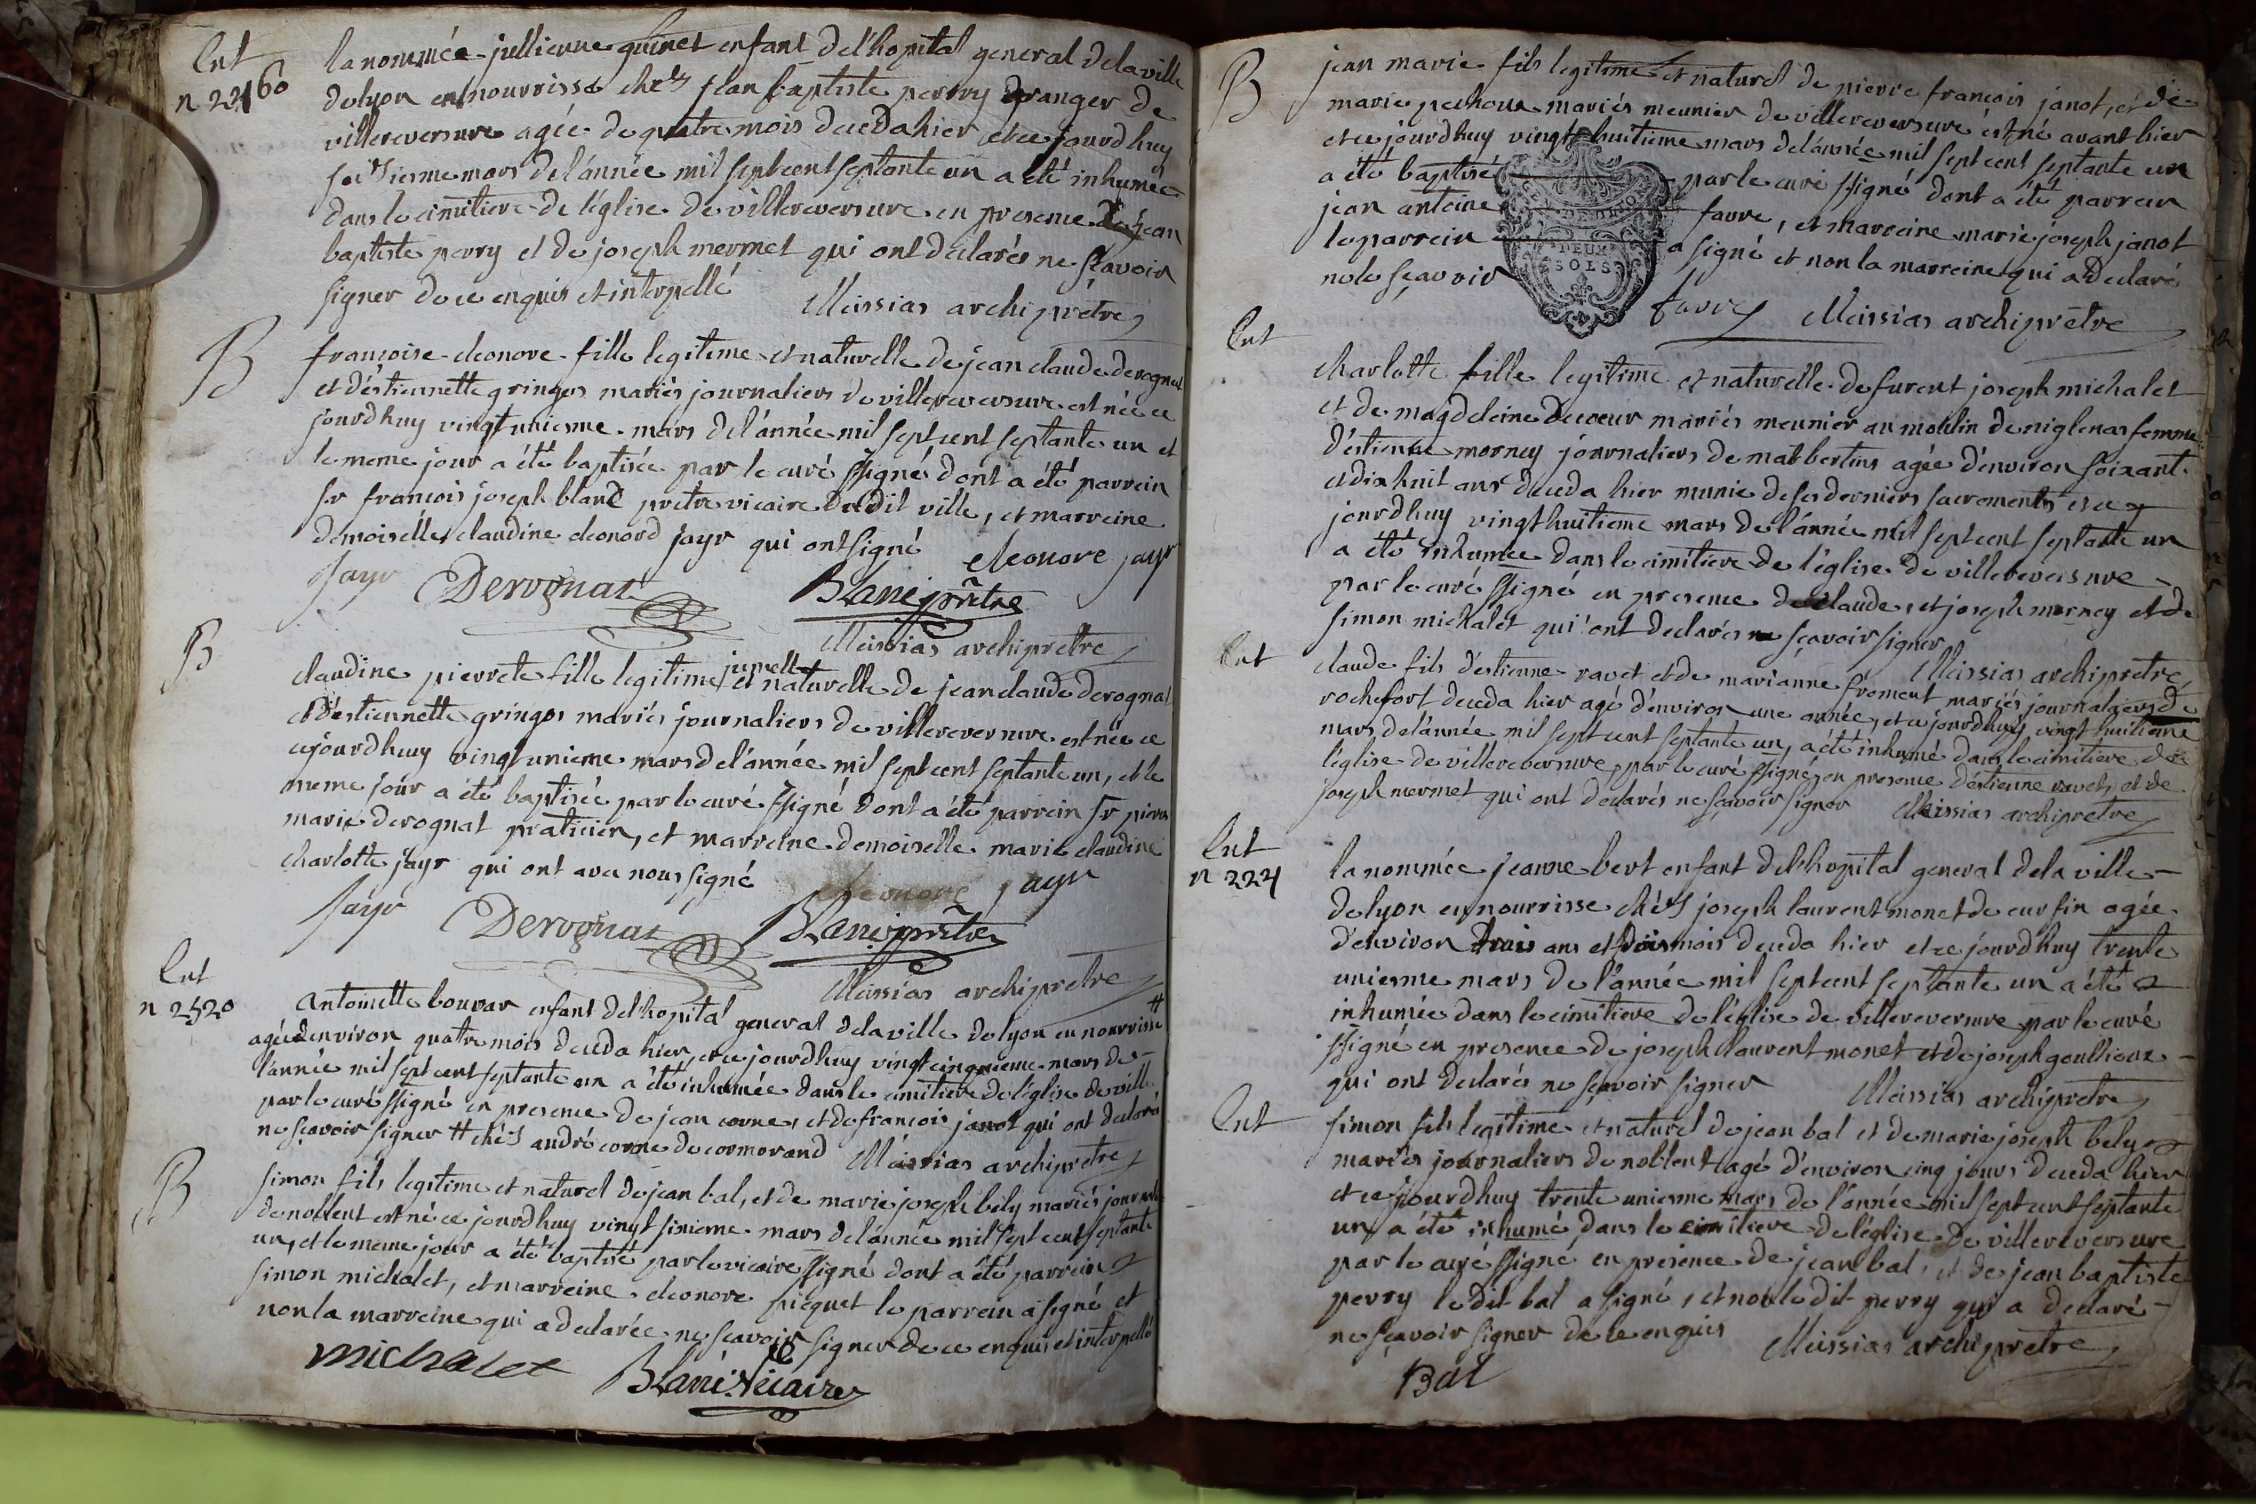 Ent
n 22160
la nommée jullienne guinet enfant de l'hopital general de la ville
de lyon en nourrisse chets jean baptiste perry granger de
villereversure agée de quatre mois deceda hier et ce jourdhuy
seiziesme mars de l'année mil sept cent septante un a été inhumée
dans le cimitiere de l'église de villereversure en presence de jean
baptiste perry et de joseph mermet qui ont declarés ne sçavoir
signer de ce enquis et interpellé
Meissias archiprêtre
B
françoise eleonore fille legitime et naturelle de jean claude derognat
et d'éstiennette gringos mariés journaliers de villereversure est née ce
jourdhuy vingt uniesme mars de l'année mil sept cent septante un et
le meme jour a été baptisée par le curé ssigné dont a été parrein
sr françois joseph blanc prêtre vicaire dudit ville, et marreine
demoiselle claudine eleonord jayr qui ont signé
eleonore jayr
Jayr Derognat Blanc prêtre
Meissias archiprêtre
B
jumelle
claudine pierrete fille legitime et naturelle de jean claude derognat
et d'estiennette gringos mariés journaliers de villereversure est née ce
ajourdhuy vingt unieme mars de l'année mil sept cent septante un, et le
meme jour a été baptisée par le curé ssigné dont a été parrein sr pierre
marie derognat praticien, et marreine demoiselle marie claudine
charlotte jayr qui ont avec nous signé
eleonore jayr
Jayr Derognat Blanc prêtre
Meissias archiprêtre
Ent
n 2520
antoinette bouvar enfant de l'hopital general de la ville de lyon en nourrisse #
agée d'environ quatre mois deceda hier, et ce jourdhuy vingt cinquieme mars de
l'année mil sept cent septante un a été inhumée dans le cimitiere de l'église de ville
par le curé ssigné en presence de jean corne, et de françois janot qui ont declarés
ne sçavoir signer # chés andré corne de cormorand Meissias archiprêtre
B
simon fils legitime et naturel de jean bal, et de marie joseph bely mariés journaliers
de noblent est né ce jourdhuy vingt sixieme mars de l'année mil sept cent septante
un, et le meme jour a été baptisé par le vicaire ssigné dont a été parrein
simon michalet, et marreine eleonore picquet le parrein a signé et
non la marreine qui a declarée ne sçavoir signer de ce enquis et interpellé
michalet Blanc Vicaire
B
jean marie fils legitime et naturel de pierre françois janot, et de
marie pechoux mariés meunier de villereversure est né avant hier
et ce jourdhuy vingt huitieme mars de l'année mil sept cent septante un
a été baptisé par le curé ssigné dont a été parrein
jean antoine favre, et marreine marie joseph janot
le parrein a signé et non la marreine qui a declaré
ne le sçavoir
DEUX
SOLS
favre Meissias archiprêtre
Ent
charlotte fille legitime et naturelle de furent joseph michalet
et de magdeleine decoeur mariés meunier au moulin de niglenas femme
d'estienne morney journaliers de malbertins agée d'environ soixant
et dix huit ans deceda hier munie de ses derniers sacrements et ce
jourdhuy vingt huitieme mars de l'année mil sept cent septante un
a été inhumée dans le cimitiere de l'église de villereversure
par le curé ssigné en presence de claude, et joseph morney et de
simon michalet qui ont declarés ne sçavoir signer
Meissias archiprêtre
Ent
claude fils d'estienne ravet et de marianne froment mariés journaliers de
rochefort deceda hier agé d'environ une année, et ce jourdhuy vingt huitieme
mars de l'année mil sept cent septante un, a été inhumé dans le cimitiere de
l'église de villereversure par le curé ssigné, en presence d'éstienne ravet, et de
joseph mermet qui ont declarés ne sçavoir signer Meissias archiprêtre
Ent
n 2221
la nommée jeanne bert enfant de l'hopital general de la ville
de lyon en nourrisse chéts joseph laurent monet de curfin agée
d'environ trois ans et trois mois deceda hier et ce jourdhuy trente
uniesme mars de l'année mil sept cent septante un a été
inhumée dans le cimitiere de l'église de villereversure par le curé
ssigné en presence de joseph laurent monet et de joseph goullioux
qui ont declarés ne sçavoir signer Meissias archiprêtre
Ent
simon fils legitime et naturel de jean bal et de marie joseph bely
mariés journaliers de noblent agé d'environ cinq jours deceda hier
et ce jourdhuy trente uniesme mars de l'année mil sept cent septante
un a été inhumé dans le cimitiere de l'église de villereversure
par le curé ssigné en presence de jean bal, et de jean baptiste
perry le dit bal a signé, et non le dit perry qui a declaré
ne sçavoir signer de ce enquis Meissias archiprêtre
Bal